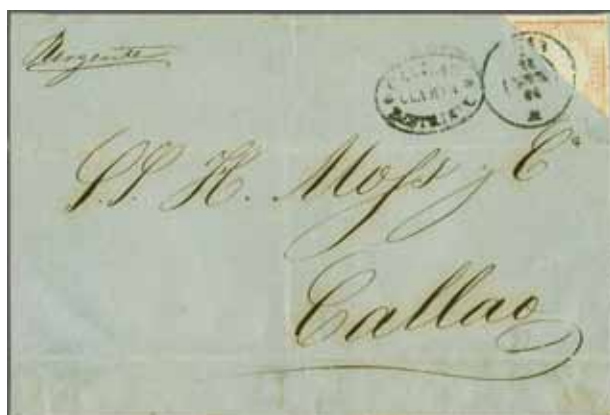 Urgente
S.S. H. Moſs y Cª
Callao